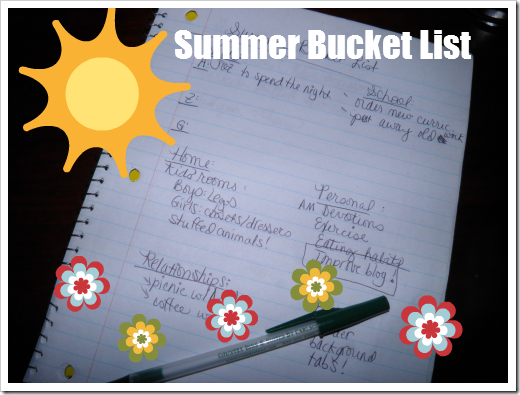 Summer Bucket List
Summer Bucket List
A: J & Z to spend the night
Z:
G:
School:
- order new curric.
- put away old work
Home:
Kids' rooms:
Boys: Legos
Girls: closets/dressers
stuffed animals!
Personal:
AM Devotions
Exercise
Eating habits
Improve blog!
Relationships:
picnic w/
coffee w/
background
tabs!